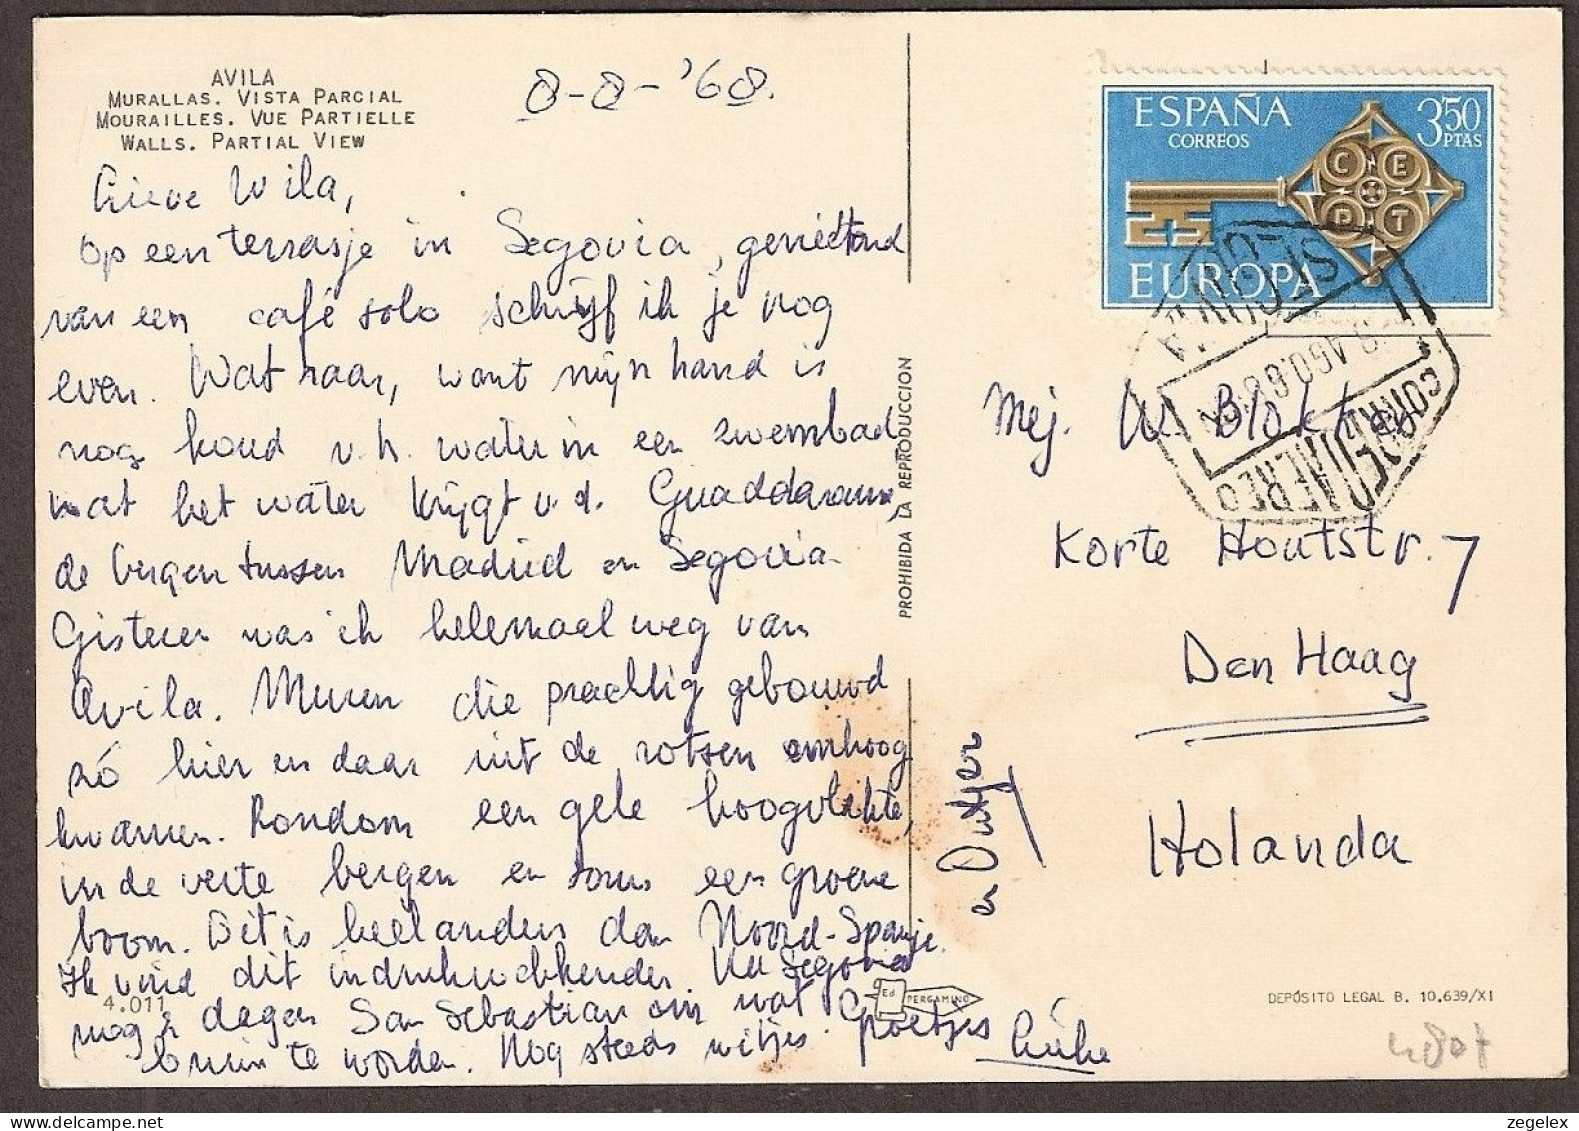 AVILA
MURALLAS. VISTA PARCIAL
MOURAILLES. VUE PARTIELLE
WALLS. PARTIAL VIEW
8-8-'68.
Lieve Wila,
Op een terrasje in Segovia, genietend
van een café solo schrijf ik je nog
even. Wat raar, want mijn hand is
nog koud v.h. water in een zwembad,
wat het water krijgt v.d. Guaddarama,
de bergen tussen Madrid en Segovia
Gisteren was ik helemaal weg van
Avila. Muren die prachtig gebouwd
zó hier en daar uit de rotsen omhoog
kwamen. Rondom een gele hoogvlakte,
in de verte bergen en soms een groene
boom. Dit is heel anders dan Noord-Spanje.
Ik vind dit indrukwekkender. Na Segovia
nog 2 dagen San Sebastian om wat
bruin te worden. Nog steeds witjes. Groetjes
4.011
PROHIBIDA LA REPRODUCCION
Ed. PERGAMINO
ESPAÑA
CORREOS
3,50
PTAS
CEPT
EUROPA
SEGOVIA
8 AGO. 68
CORREO AEREO
Mej. W. Blokker
Korte Houtstr. 7
Den Haag
Holanda
DEPÓSITO LEGAL B. 10.639/XI
zegelex